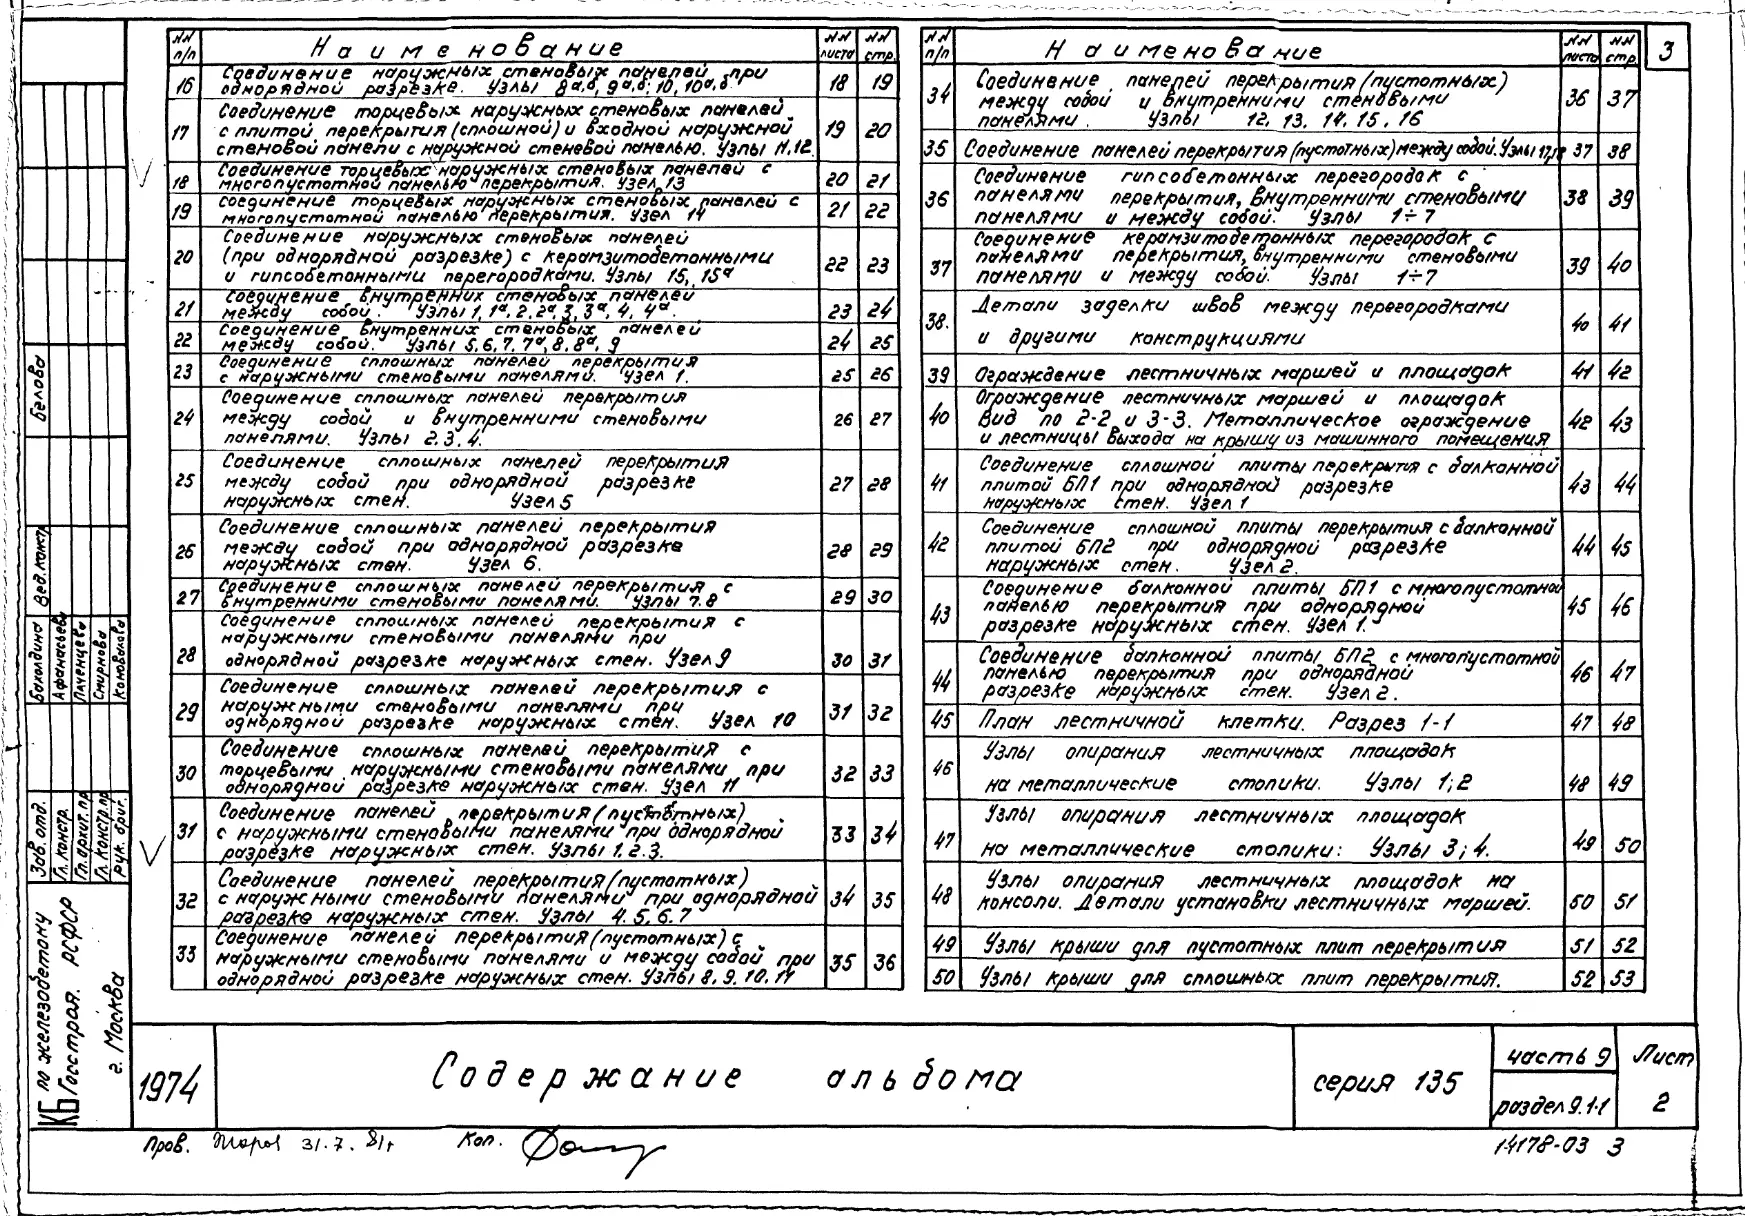 3
NN п/п Наименование NN листа NN стр.
16 Соединение наружных стеновых панелей при
однорядной разрезке. Узлы 8а,б, 9а,б; 10, 10а,б 18 19
17 Соединение торцевых наружных стеновых панелей
с плитой перекрытия (сплошной) и входной наружной
стеновой панели с наружной стеневой панелью. Узлы 11,12. 19 20
18 Соединение торцевых наружных стеновых панелей с
многопустотной панелью перекрытия. Узел 13 20 21
19 Соединение торцевых наружных стеновых панелей с
многопустотной панелью перекрытия. Узел 14 21 22
20 Соединение наружных стеновых панелей
(при однорядной разрезке) с керамзитобетонными
и гипсобетонными перегородками. Узлы 15, 15а 22 23
21 Соединение внутренних стеновых панелей
между собой. Узлы 1, 1а, 2, 2а, 3, 3а, 4, 4а. 23 24
22 Соединение внутренних стеновых панелей
между собой. Узлы 5, 6, 7, 7а, 8, 8а, 9 24 25
23 Соединение сплошных панелей перекрытия
с наружными стеновыми панелями. Узел 1. 25 26
24 Соединение сплошных панелей перекрытия
между собой и внутренними стеновыми
панелями. Узлы 2. 3. 4. 26 27
25 Соединение сплошных панелей перекрытия
между собой при однорядной разрезке
наружных стен. Узел 5 27 28
26 Соединение сплошных панелей перекрытия
между собой при однорядной разрезке
наружных стен. Узел 6. 28 29
27 Соединение сплошных панелей перекрытия с
внутренними стеновыми панелями. Узлы 7. 8 29 30
28 Соединение сплошных панелей перекрытия с
наружными стеновыми панелями при
однорядной разрезке наружных стен. Узел 9 30 31
29 Соединение сплошных панелей перекрытия с
наружными стеновыми панелями при
однорядной разрезке наружных стен. Узел 10 31 32
30 Соединение сплошных панелей перекрытия с
торцевыми наружными стеновыми панелями при
однорядной разрезке наружных стен. Узел 11 32 33
31 Соединение панелей перекрытия (пустотных)
с наружными стеновыми панелями при однорядной
разрезке наружных стен. Узлы 1. 2. 3. 33 34
32 Соединение панелей перекрытия (пустотных)
с наружными стеновыми панелями при однорядной
разрезке наружных стен. Узлы 4. 5. 6. 7 34 35
33 Соединение панелей перекрытия (пустотных) с
наружными стеновыми панелями и между собой при
однорядной разрезке наружных стен. Узлы 8. 9. 10. 11 35 36
NN п/п Наименование NN листа NN стр.
34 Соединение панелей перекрытия (пустотных)
между собой и внутренними стеновыми
панелями. Узлы 12, 13, 14, 15, 16 36 37
35 Соединение панелей перекрытия (пустотных) между собой. Узлы 17,18 37 38
36 Соединение гипсобетонных перегородок с
панелями перекрытия, внутренними стеновыми
панелями и между собой. Узлы 1÷7 38 39
37 Соединение керамзитобетонных перегородок с
панелями перекрытия, внутренними стеновыми
панелями и между собой. Узлы 1÷7 39 40
38. Детали заделки швов между перегородками
и другими конструкциями 40 41
39 Ограждение лестничных маршей и площадок 41 42
40 Ограждение лестничных маршей и площадок
Вид по 2-2 и 3-3. Металлическое ограждение
и лестницы выхода на крышу из машинного помещения 42 43
41 Соединение сплошной плиты перекрытия с балконной
плитой БП1 при однорядной разрезке
наружных стен. Узел 1 43 44
42 Соединение сплошной плиты перекрытия с балконной
плитой БП2 при однорядной разрезке
наружных стен. Узел 2. 44 45
43 Соединение балконной плиты БП1 с многопустотной
панелью перекрытия при однорядной
разрезке наружных стен. Узел 1. 45 46
44 Соединение балконной плиты БП2 с многопустотной
панелью перекрытия при однорядной
разрезке наружных стен. Узел 2. 46 47
45 План лестничной клетки. Разрез 1-1 47 48
46 Узлы опирания лестничных площадок
на металлические столики. Узлы 1; 2 48 49
47 Узлы опирания лестничных площадок
на металлические столики: Узлы 3; 4. 49 50
48 Узлы опирания лестничных площадок на
консоли. Детали установки лестничных маршей. 50 51
49 Узлы крыши для пустотных плит перекрытия 51 52
50 Узлы крыши для сплошных плит перекрытия. 52 53
Белова
Вед. констр
Балолдина
Афанасьева
Плеченцева
Смирнова
Коновалова
Зав. отд.
Гл. констр.
Гл. архит. пр
Гл. констр. пр
рук. бриг.
КБ по железобетону
Госстроя. РСФСР
г. Москва
1974 Содержание альбома серия 135 часть 9 Лист
раздел 9.1-1 2
Пров. 31.7.81г Кап.
14178-03 3